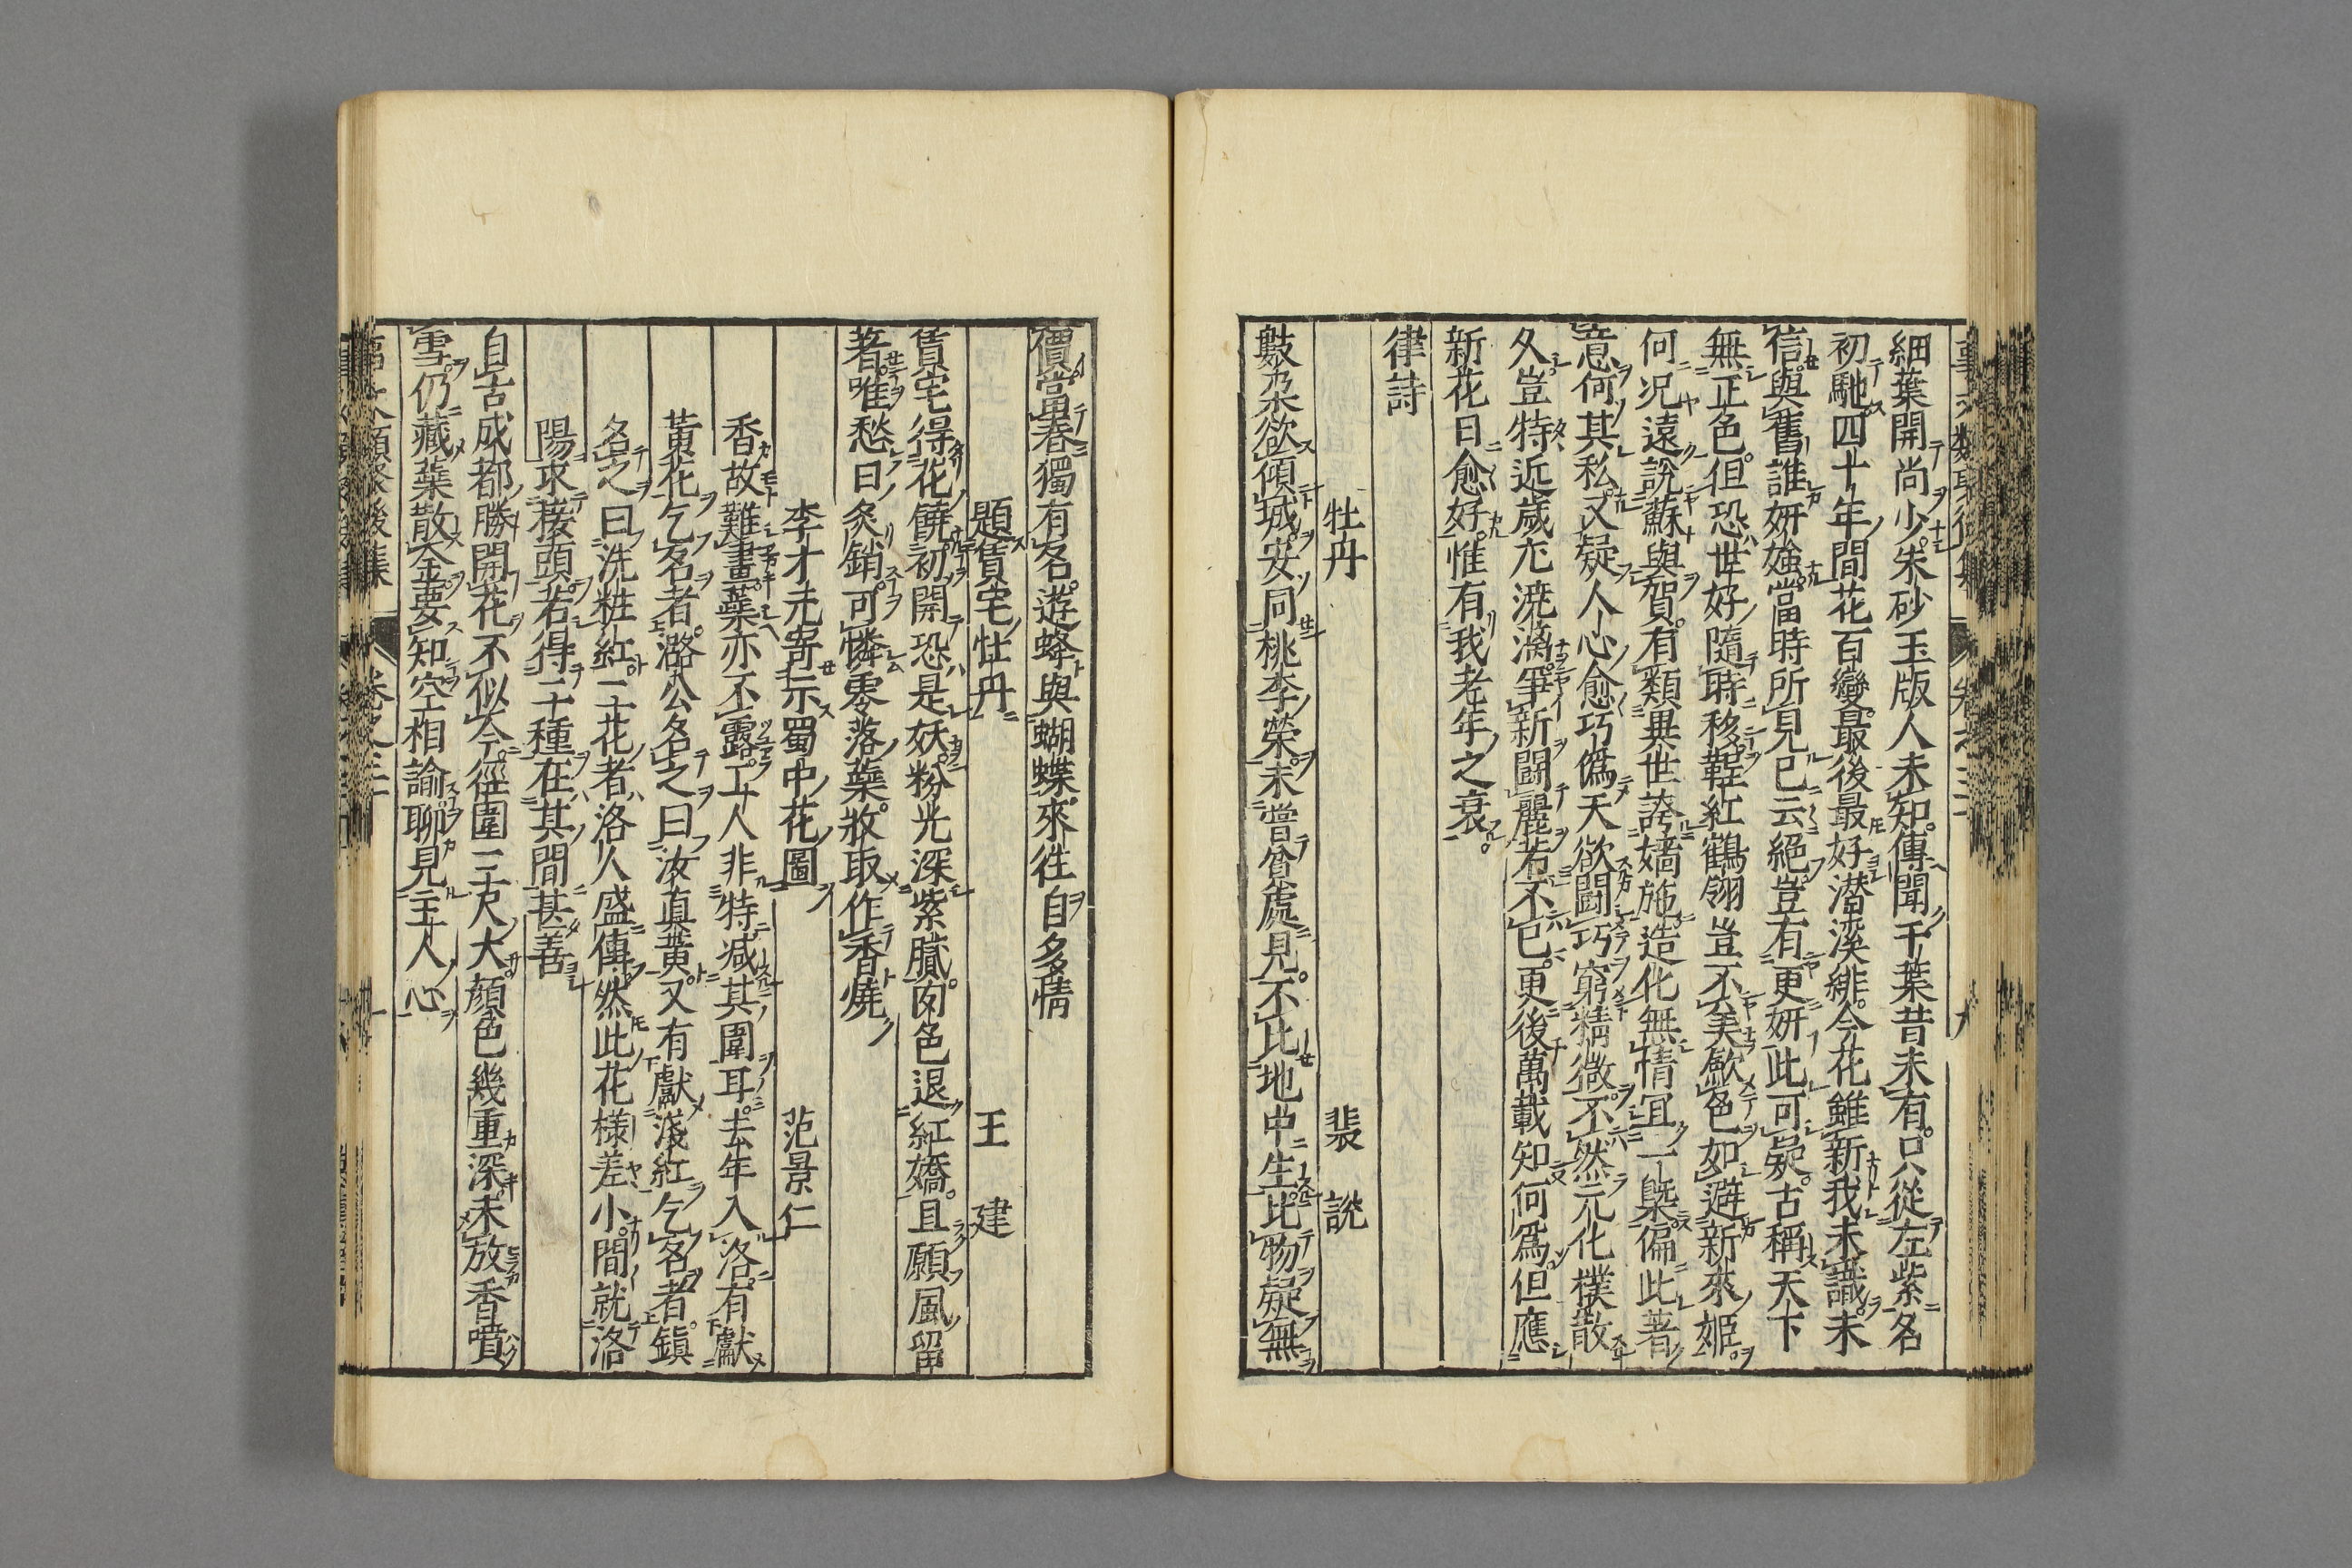 細葉開尚少朱砂玉版人未知傳聞千葉昔未有只從左紫名
初馳四十年間花百變最後最好潜溪緋今花雖新我未識未
信與舊誰妍媸當時所見已云絕豈有更妍此可疑古稱天下
無正色但恐世好隨時移鞓紅鶴翎豈不美歛色如避新來姬
何况遠說蘇與賀有類異世誇嬙施造化無情宜一槩偏此著
意何其私又疑人心愈巧僞天欲闘巧窮精微不然元化樸散
久豈特近歲尤澆漓爭新闘麗若不已更後萬載知何爲但應
新花日愈好惟有我老年之衰
律詩
牡丹 裴說
數朶欲傾城安同桃李榮未嘗貧處見不比地中生比物疑無
價當春獨有名遊蜂與蝴蝶來徃自多情
題賃宅牡丹 王建
賃宅得花饒初開恐是妖粉光深紫膩肉色退紅嬌且願風留
著唯愁日炙銷可憐零落蘂收取作香燒
李才元寄示蜀中花圖 范景仁
香故難畫蘂亦不露工人非特减其圍耳去年入洛有獻
黃花乞名者潞公名之曰汝真黃又有獻淺紅乞名者鎮
名之曰洗粧紅二花者洛人盛傳然此花樣差小間就洛
陽求接頭若得二十種在其間甚善
自古成都勝開花不似今徑圍三尺大顏色幾重深未放香噴
雪仍藏蘂散金要知空相諭聊見主人心
事文類聚後集 卷之三十